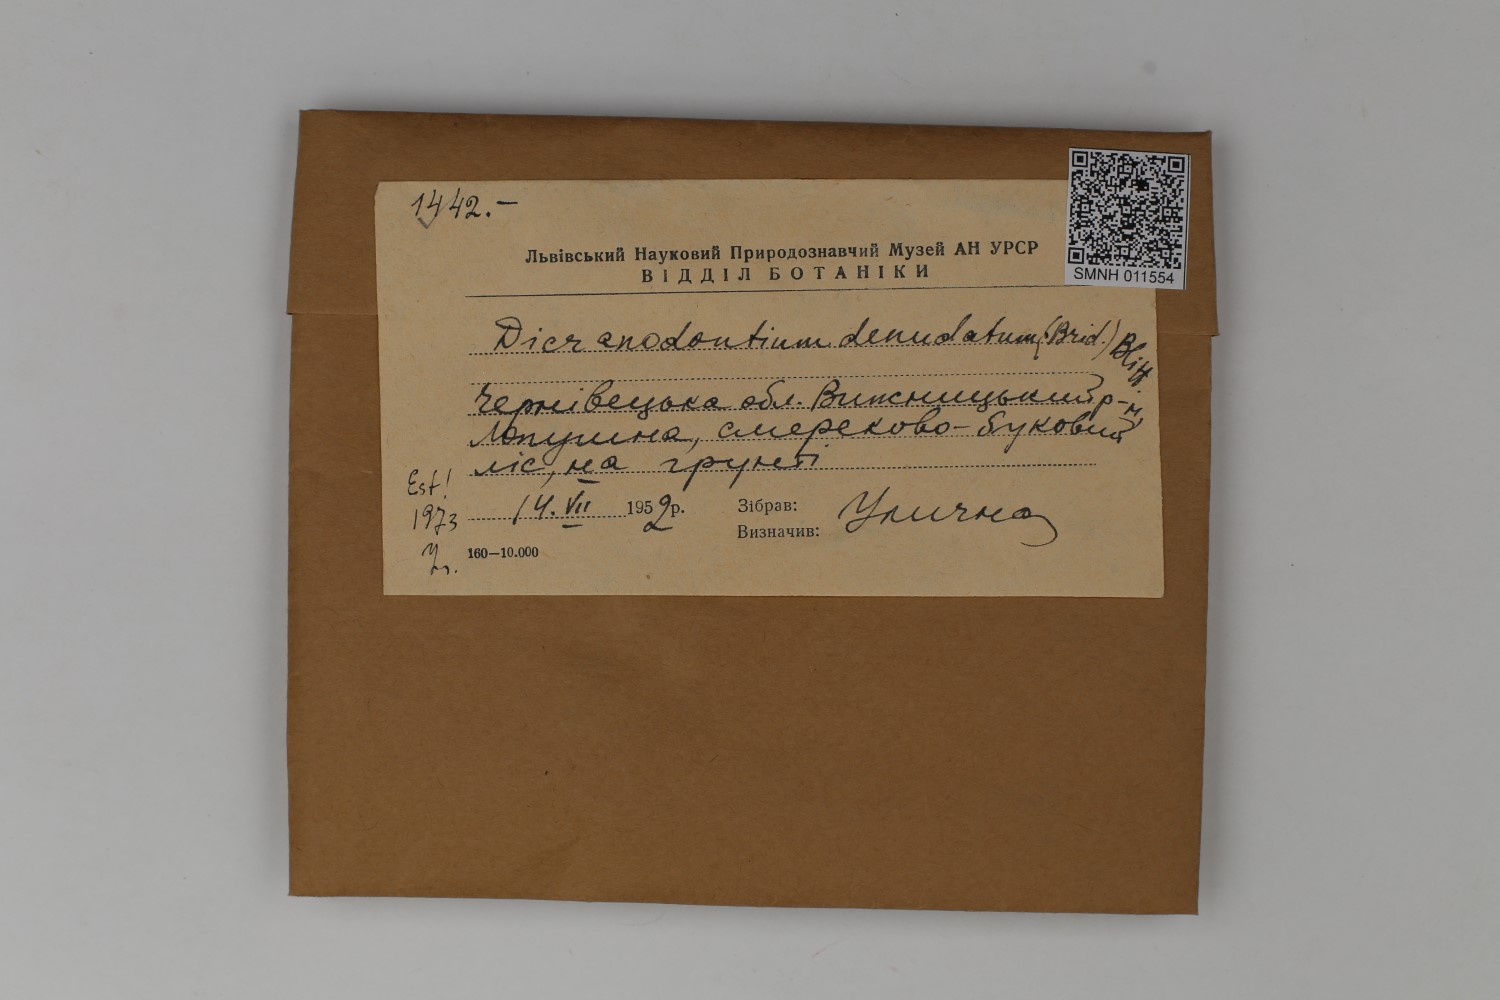 1442.-
SMNH 011554
Львівський Науковий Природознавчий Музей АН УРСР
ВІДДІЛ БОТАНІКИ
Dicranodontium denudatum (Brid.)
Чернівецька обл. Вижницький р-н,
Лопушна, смереково-буковий
ліс, на грунті
Est!
1973
14. VII 1952р.
Зібрав:
Визначив:
Улична
160—10.000